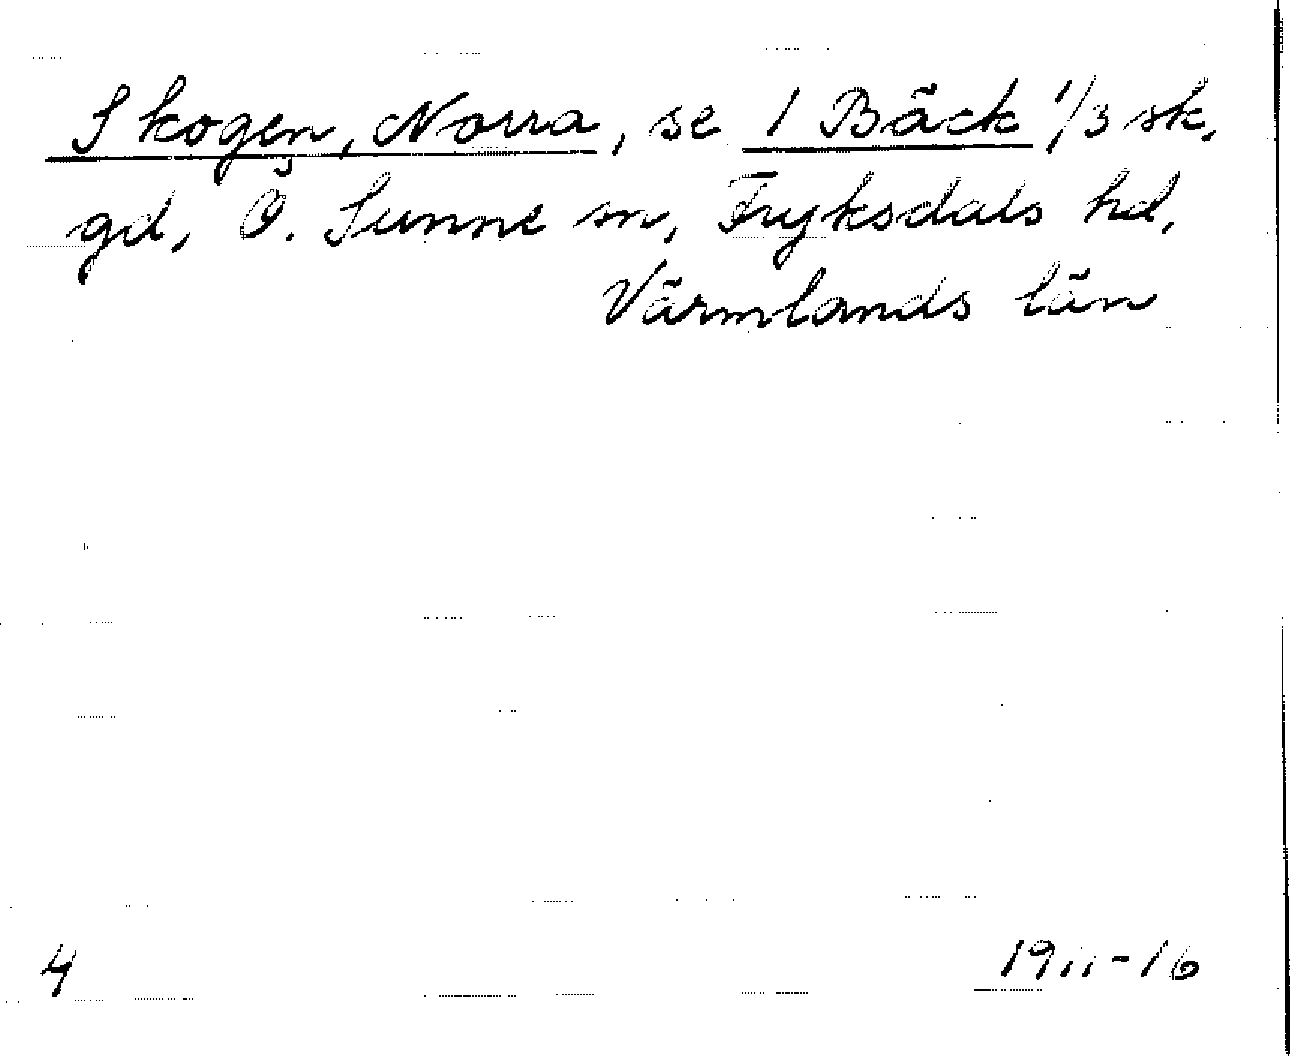 Skogen, Norra, se 1 Bäck 1/3 sk.
gd, Ö. Sunne sn, Fryksdals hd,
Värmlands län
4
1911-16